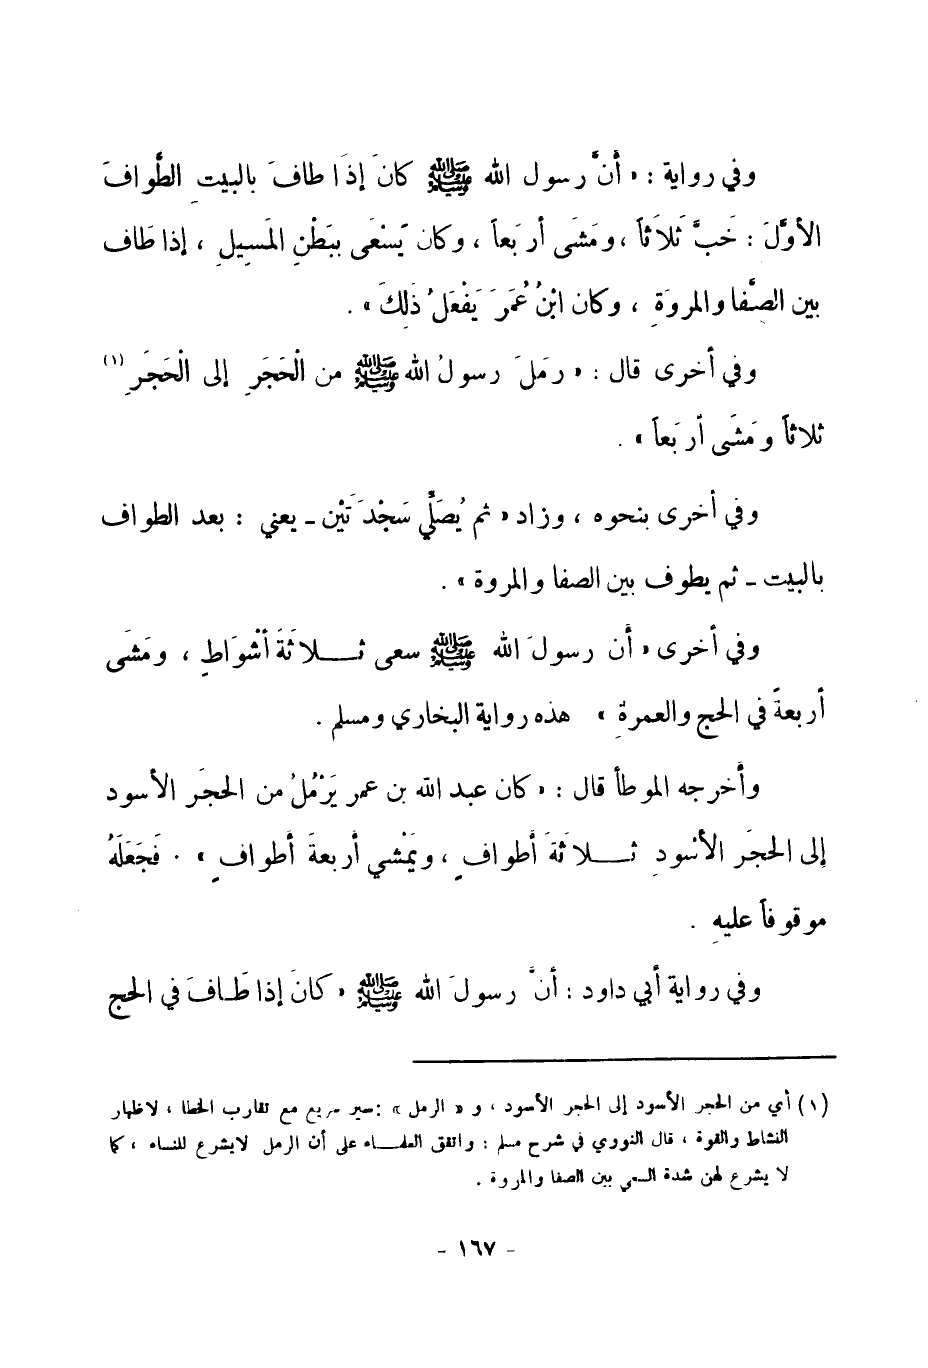 وفي رواية : « أَنَّ رسول الله ﷺ كانَ إذَا طافَ بالبيتِ الطَّوافَ
الأوَّلَ : خَبَّ ثَلاثَاً ، ومَشَى أربَعاً ، وكان يَسْعَى ببَطْنِ المَسِيلِ ، إذا طَاف
بين الصَّفا والمروَةِ ، وكان ابْنُ عُمَرَ يَفْعَلُ ذَلِكَ » .
وفي أخرى قال : « رمَلَ رسولُ الله ﷺ من الْحَجَرِ إلى الْحَجَرِ (١)
ثلاثاً ومَشَى أربَعاً » .
وفي أخرى بنحوه ، وزاد « ثم يُصَلِّي سَجْدَتَيْن ـ يعني : بعد الطواف
بالبيت ـ ثم يطوف بين الصفا والمروة » .
وفي أخرى « أن رسولَ الله ﷺ سعى ثـــلاثَةَ أشْوَاطٍ ، ومَشَى
أربعةً في الحج والعمرةِ » هذه رواية البخاري ومسلم .
وأخرجه الموطأ قال : « كان عبد الله بن عمر يَرْمُلُ من الحجَر الأسود
إلى الحجَر الأسْودِ ثـــلاثَةَ أطوافٍ ، ويَمْشي أربعةَ أطوافٍ » . فَجَعَلَهُ
موقوفاً عليهِ .
وفي رواية أبي داود : أنَّ رسولَ الله ﷺ « كانَ إذا طَافَ في الحج
(١) أي من الحجر الأسود إلى الحجر الأسود ، و « الرمل » : سير سريع مع تقارب الخطا ، لاظهار
النشاط والقوة ، قال النووي في شرح مسلم : واتفق العلمـــاء على أن الرمل لايشرع للنساء ، كما
لا يشرع لهن شدة السعي بين الصفا والمروة .
- ١٦٧ -